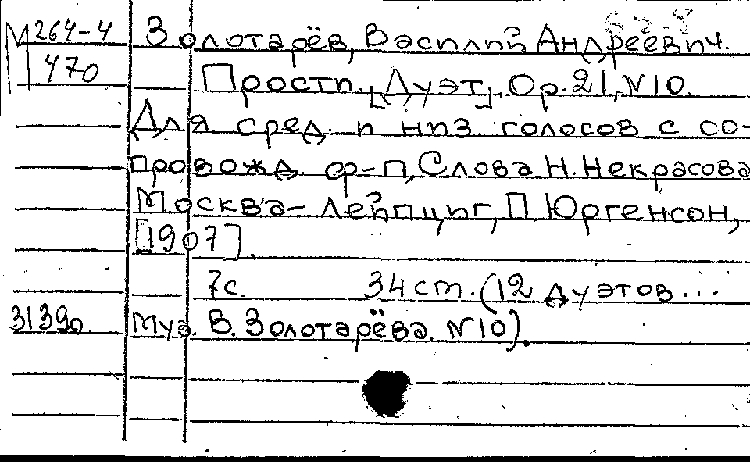 М 264-4 Золотарёв, Василий Андреевич.
470 Прости. [Дуэт]. Ор.21, №10.
Для сред. и низ. голосов с со-
провожд. ф-п. Слова Н. Некрасова
Москва-Лейпциг, П. Юргенсон,
[1907].
7с. 34 ст. (12 дуэтов...
31390 Муз. В. Золотарёва. №10).